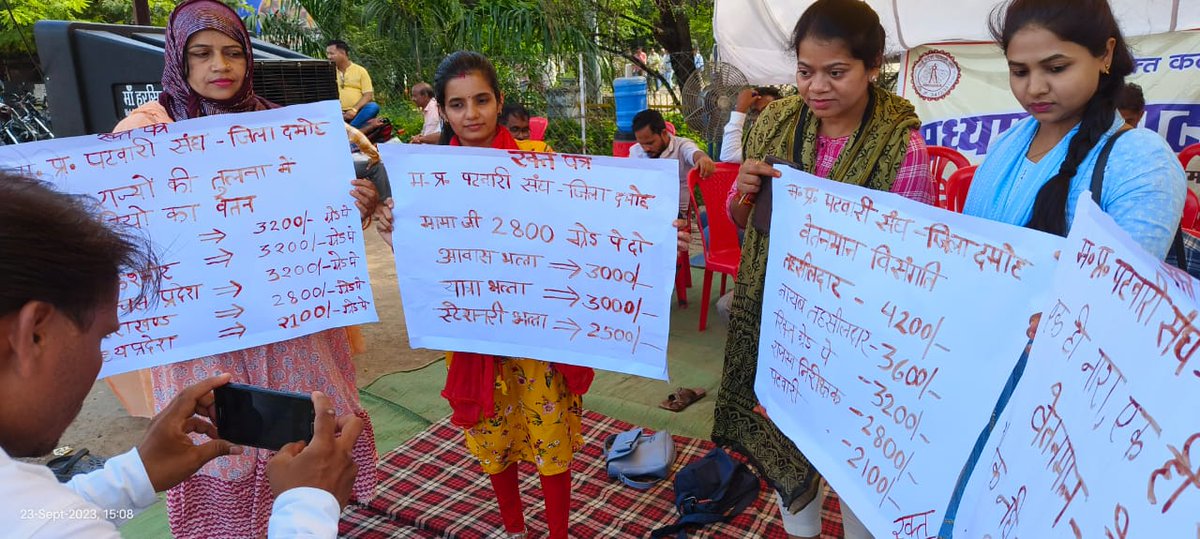 रक्त पत्र
म. प्र. पटवारी संघ - जिला दमोह
राज्यों की तुलना में
का वेतन
⇒ 3200/- ग्रेड पे
⇒ 3200/- ग्रेड पे
प्रदेश ⇒ 3200/- ग्रेड पे
⇒ 2800/- ग्रेड पे
⇒ 2100/- ग्रेड पे
रक्त पत्र
म. प्र. पटवारी संघ - जिला दमोह
मामा जी 2800 ग्रेड पे दो
आवास भत्ता ⇒ 3000/-
यात्रा भत्ता ⇒ 3000/-
स्टेशनरी भत्ता ⇒ 2500/-
म. प्र. पटवारी संघ - जिला दमोह
वेतनमान विसंगति
तहसीलदार - 4200/-
नायब तहसीलदार - 3600/-
ग्रेड पे - 3200/-
राजस्व निरीक्षक - 2800/-
पटवारी - 2100/-
रक्त
म. प्र. पटवारी संघ
एक ही नारा, एक
वेतनमान
माँ
23-Sept-2023, 15:08